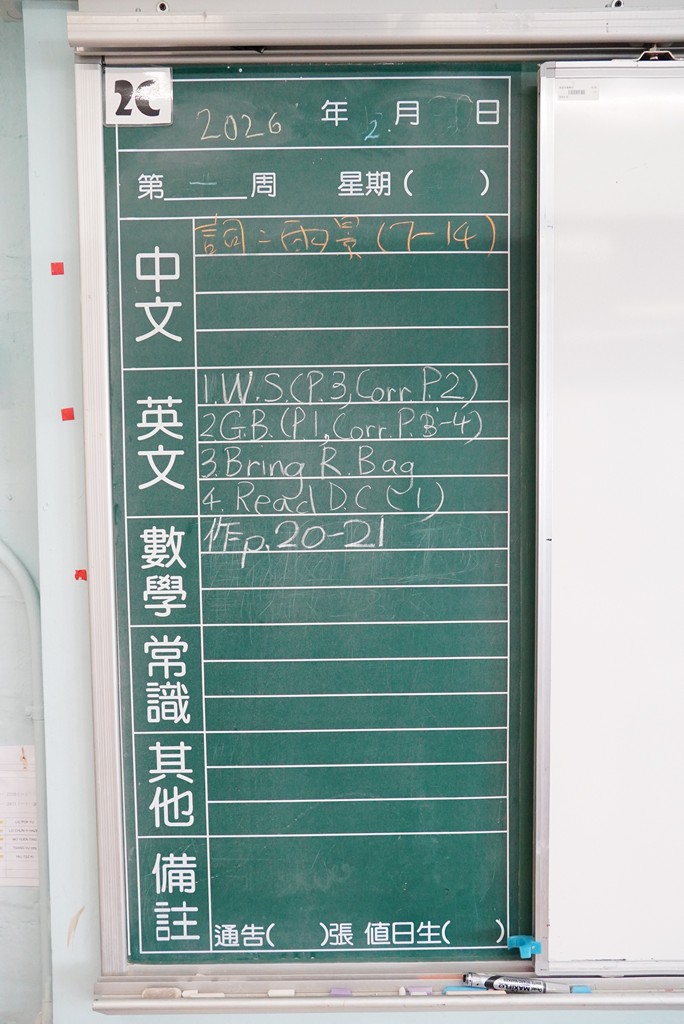 2C
2026 年 2 月 日
第 一 周 星期( )
中文
詞:雨景(7-14)
英文
1.W.S.(P.3,Corr.P.2)
2G.B.(P1,Corr.P.B-4)
3.Bring R.Bag
4.Read D.C(-1)
數學
作p.20-21
常識
其他
備註
通告( )張 值日生( )
MAXIFLO